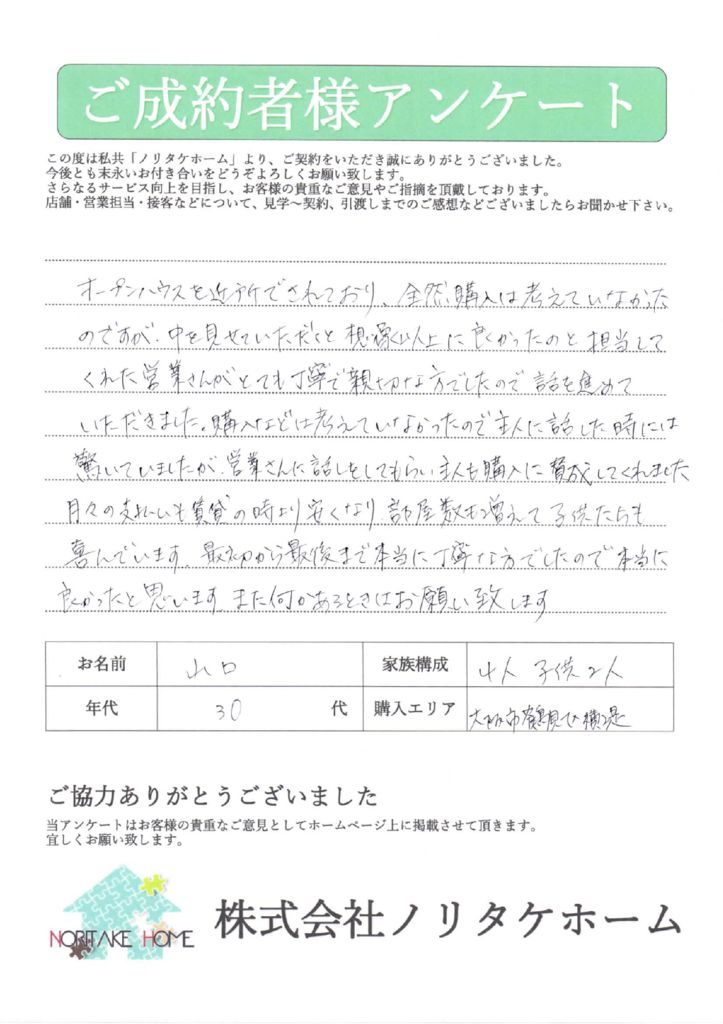 ご成約者様アンケート
この度は私共「ノリタケホーム」より、ご契約をいただき誠にありがとうございました。
今後とも末永いお付き合いをどうぞよろしくお願い致します。
さらなるサービス向上を目指し、お客様の貴重なご意見やご指摘を頂戴しております。
店舗・営業担当・接客などについて、見学～契約、引渡しまでのご感想などございましたらお聞かせ下さい。
オープンハウスを近所でされており、全然購入は考えていなかった
のですが、中を見せていただくと想像以上に良かったのと担当して
くれた営業さんがとても丁寧で親切な方でしたので話を進めて
いただきました。購入などは考えていなかったので主人に話した時には
驚いていましたが、営業さんに話しをしてもらい主人も購入に賛成してくれました
月々の支払いも賃貸の時より安くなり、部屋数も増えて子供たちも
喜んでいます。最初から最後まで本当に丁寧な方でしたので本当に
良かったと思います。また何かあるときはお願い致します
お名前 山口 家族構成 4人 子供2人
年代 30 代 購入エリア 大阪市鶴見区横堤
ご協力ありがとうございました
当アンケートはお客様の貴重なご意見としてホームページ上に掲載させて頂きます。
宜しくお願い致します。
NORITAKE HOME 株式会社ノリタケホーム